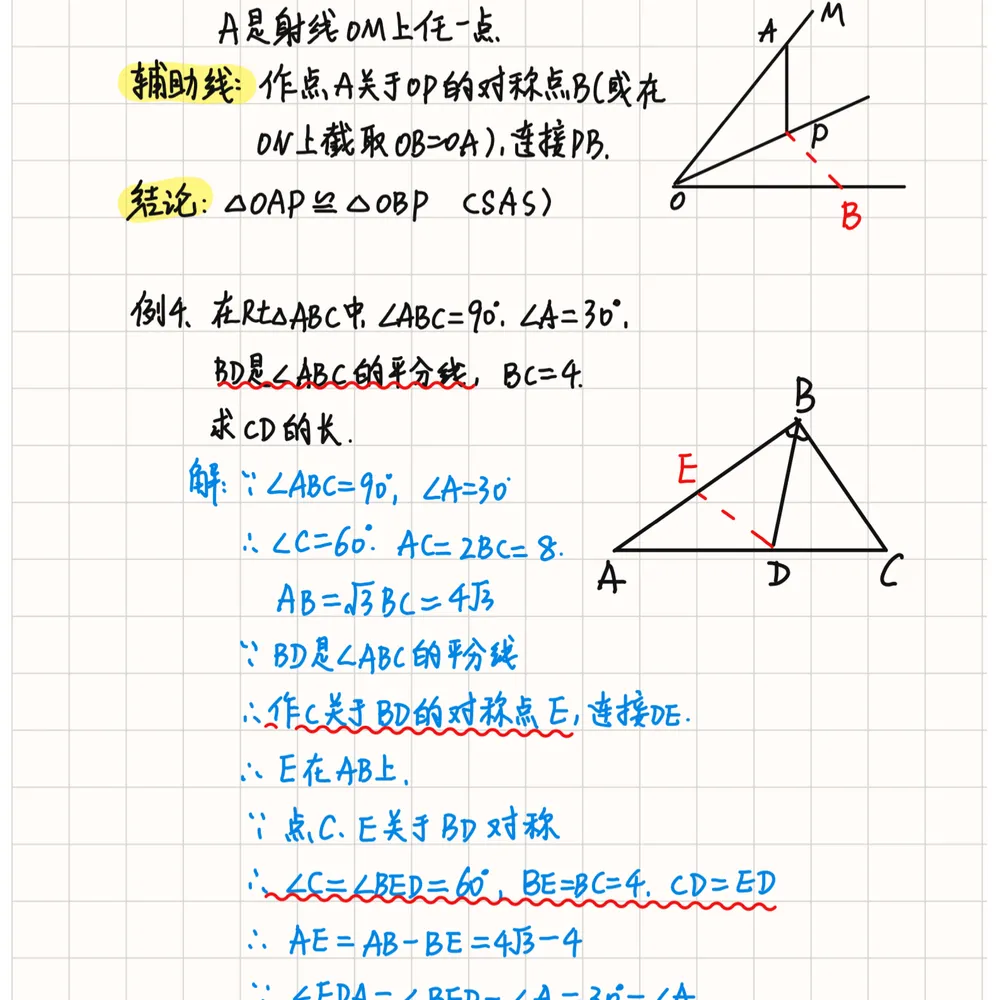 A是射线OM上任一点.
辅助线: 作点A关于OP的对称点B(或在
ON上截取OB=OA),连接PB.
结论: △OAP≌△OBP (SAS)
M
A
P
O
B
例4、在Rt△ABC中,∠ABC=90°.∠A=30°.
BD是∠ABC的平分线, BC=4.
求CD的长.
B
E
A
D
C
解: ∵∠ABC=90°, ∠A=30°
∴∠C=60°. AC=2BC=8.
AB=√3BC=4√3
∵BD是∠ABC的平分线
∴作C关于BD的对称点E,连接DE.
∴E在AB上.
∵点C、E关于BD对称
∴∠C=∠BED=60°, BE=BC=4. CD=ED
∴AE=AB-BE=4√3-4
∵∠EDA=∠BED-∠A=30°=∠A